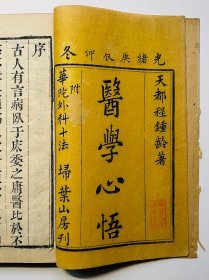 光緒庚辰仲冬
天都程鍾齡著
醫學心悟
附華陀外科十法
掃葉山房刊
序
古人有言病臥于床委之庸醫比於不